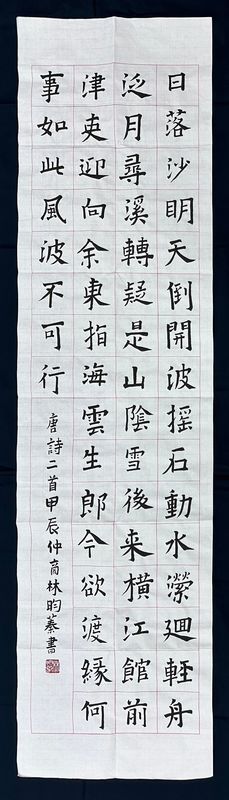 日落沙明天倒開波搖石動水濚迴輕舟
泛月尋溪轉疑是山陰雪後來橫江館前
津吏迎向余東指海雲生郎今欲渡緣何
事如此風波不可行
唐詩二首甲辰仲商林昀蓁書